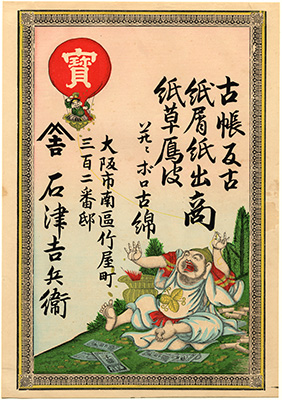 寶
古帳反古
紙屑紙出商
紙草鳫皮
ボロ古綿
大阪市南區竹屋町
三百二番邸
吉 石津吉兵衛